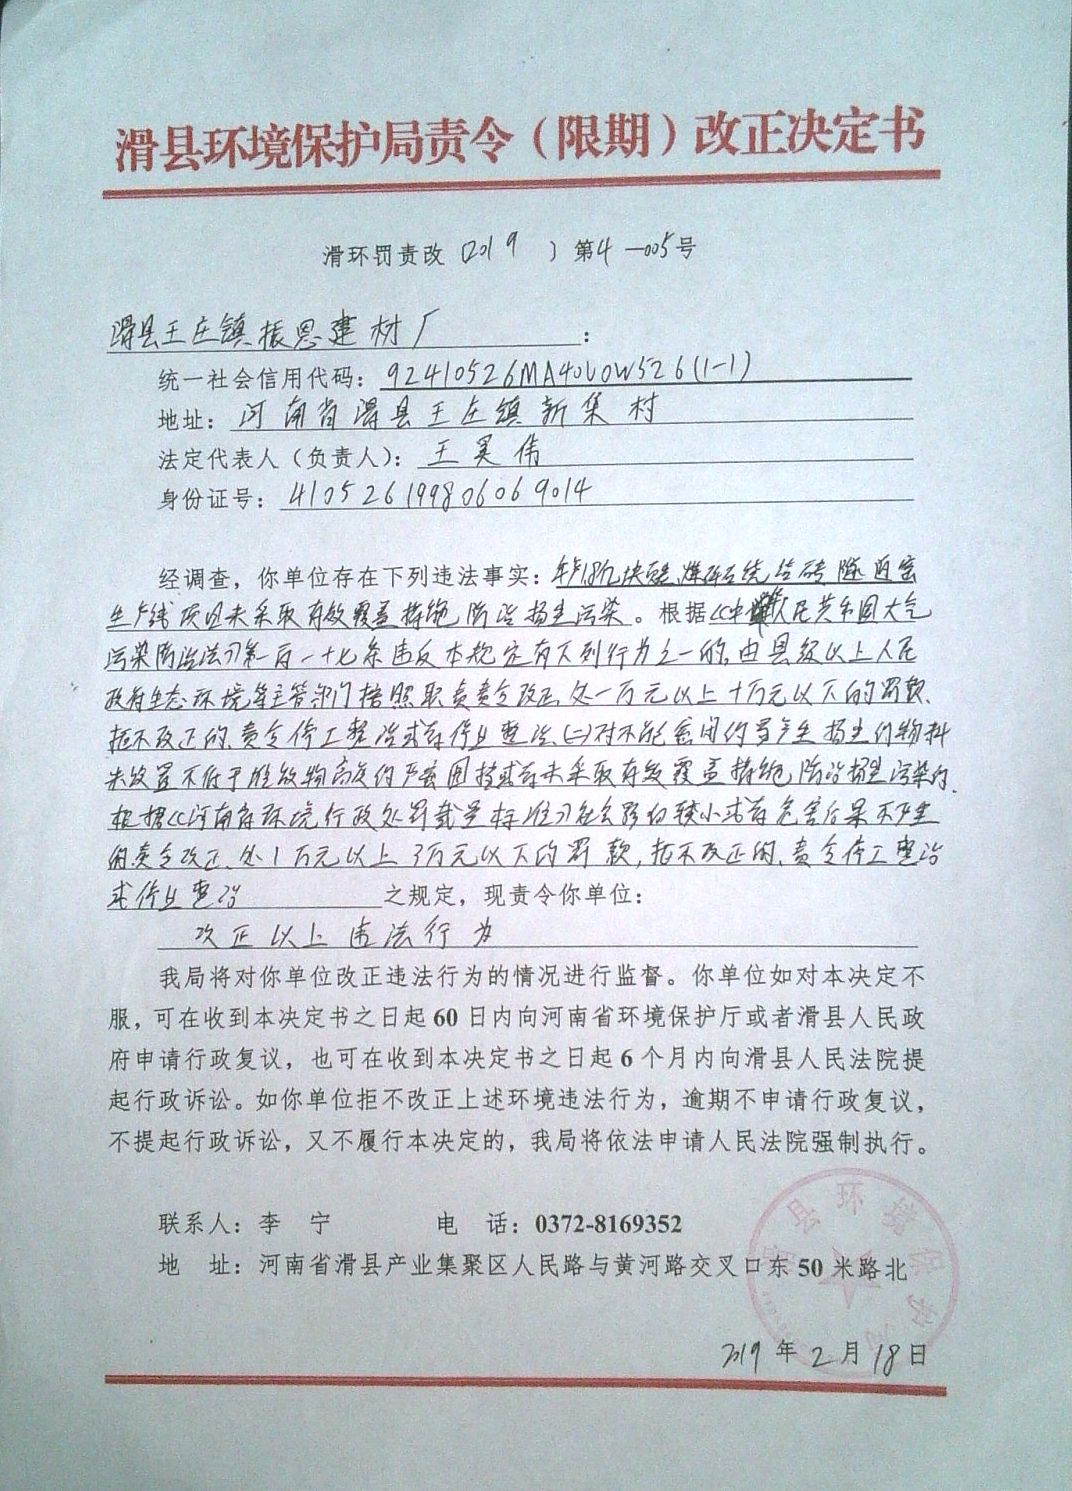 滑县环境保护局责令（限期）改正决定书
滑环罚责改〔2019〕第4-005号
滑县王庄镇振恩建材厂：
统一社会信用代码：92410526MA40U0W526(1-1)
地址：河南省滑县王庄镇新集村
法定代表人（负责人）：王昊伟
身份证号：410526199806069014
经调查，你单位存在下列违法事实：年产 块 煤矸石烧结砖隧道窑
生产线项目未采取有效覆盖措施防治扬尘污染。根据《中华人民共和国大气
污染防治法》第一百一十七条违反本规定有下列行为之一的,由县级以上人民
政府生态环境等主管部门按照职责责令改正,处一万元以上十万元以下的罚款,
拒不改正的、责令停工整治或者停业整治、(二)对不能密闭的易产生扬尘的物料
未设置不低于堆放物高度的严密围挡或者未采取有效覆盖措施防治扬尘污染的.
根据《河南省环境行政处罚裁量标准》社会影响较小或者危害后果不严重
的责令改正、处1万元以上3万元以下的罚款,拒不改正的、责令停工整治
或停业整治之规定，现责令你单位：
改正以上违法行为
我局将对你单位改正违法行为的情况进行监督。你单位如对本决定不
服，可在收到本决定书之日起60日内向河南省环境保护厅或者滑县人民政
府申请行政复议，也可在收到本决定书之日起6个月内向滑县人民法院提
起行政诉讼。如你单位拒不改正上述环境违法行为，逾期不申请行政复议，
不提起行政诉讼，又不履行本决定的，我局将依法申请人民法院强制执行。
联系人：李 宁 电 话：0372-8169352
地 址：河南省滑县产业集聚区人民路与黄河路交叉口东50米路北
2019年2月18日